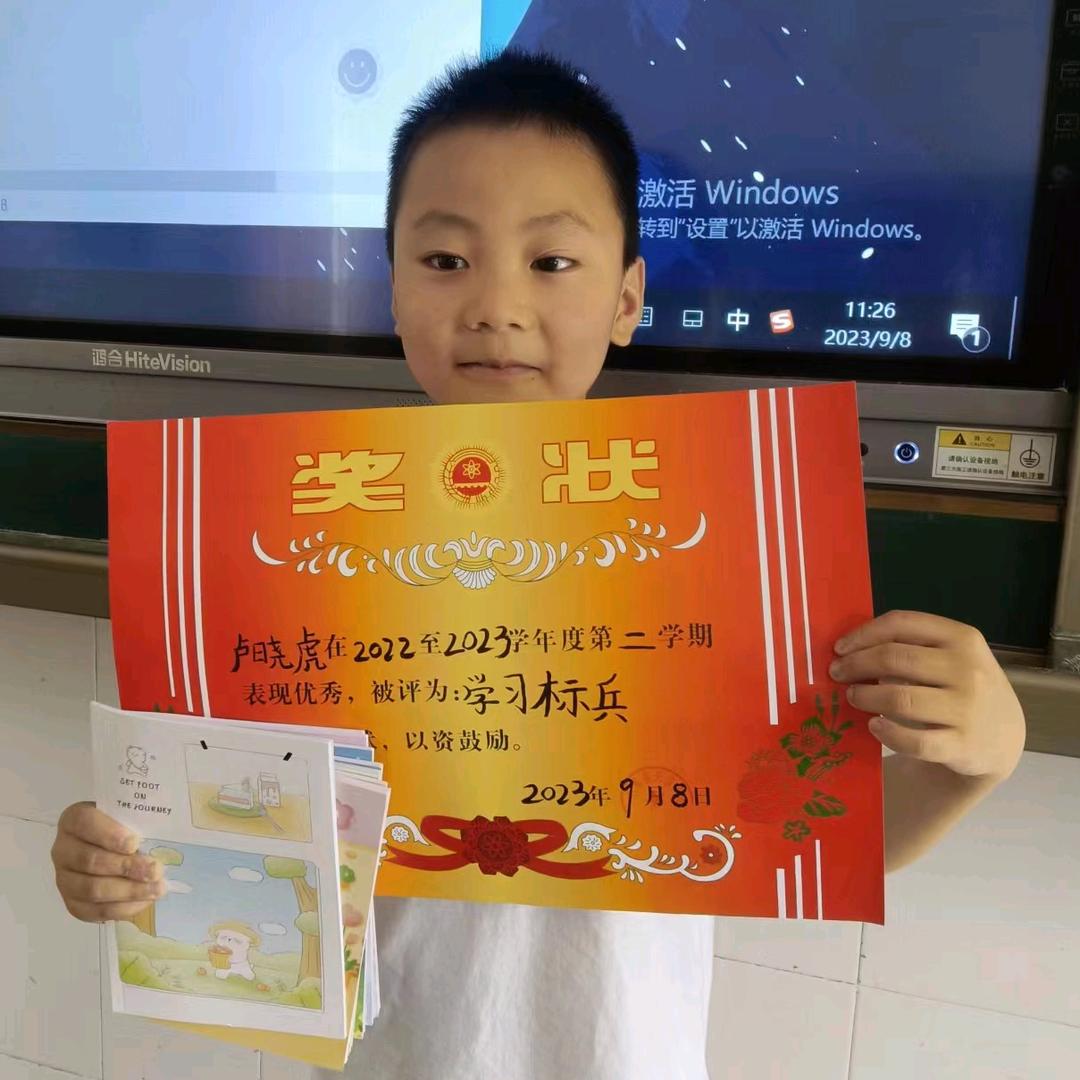 激活 Windows
转到"设置"以激活 Windows。
中
11:26
2023/9/8
1
鸿合 HiteVision
CAUTION
请确认设备接地
触电注意
奖状
卢晓虎在2022至2023学年度第二学期
表现优秀，被评为：学习标兵
，以资鼓励。
2023年9月8日
GET FOOT
ON
THE JOURNEY